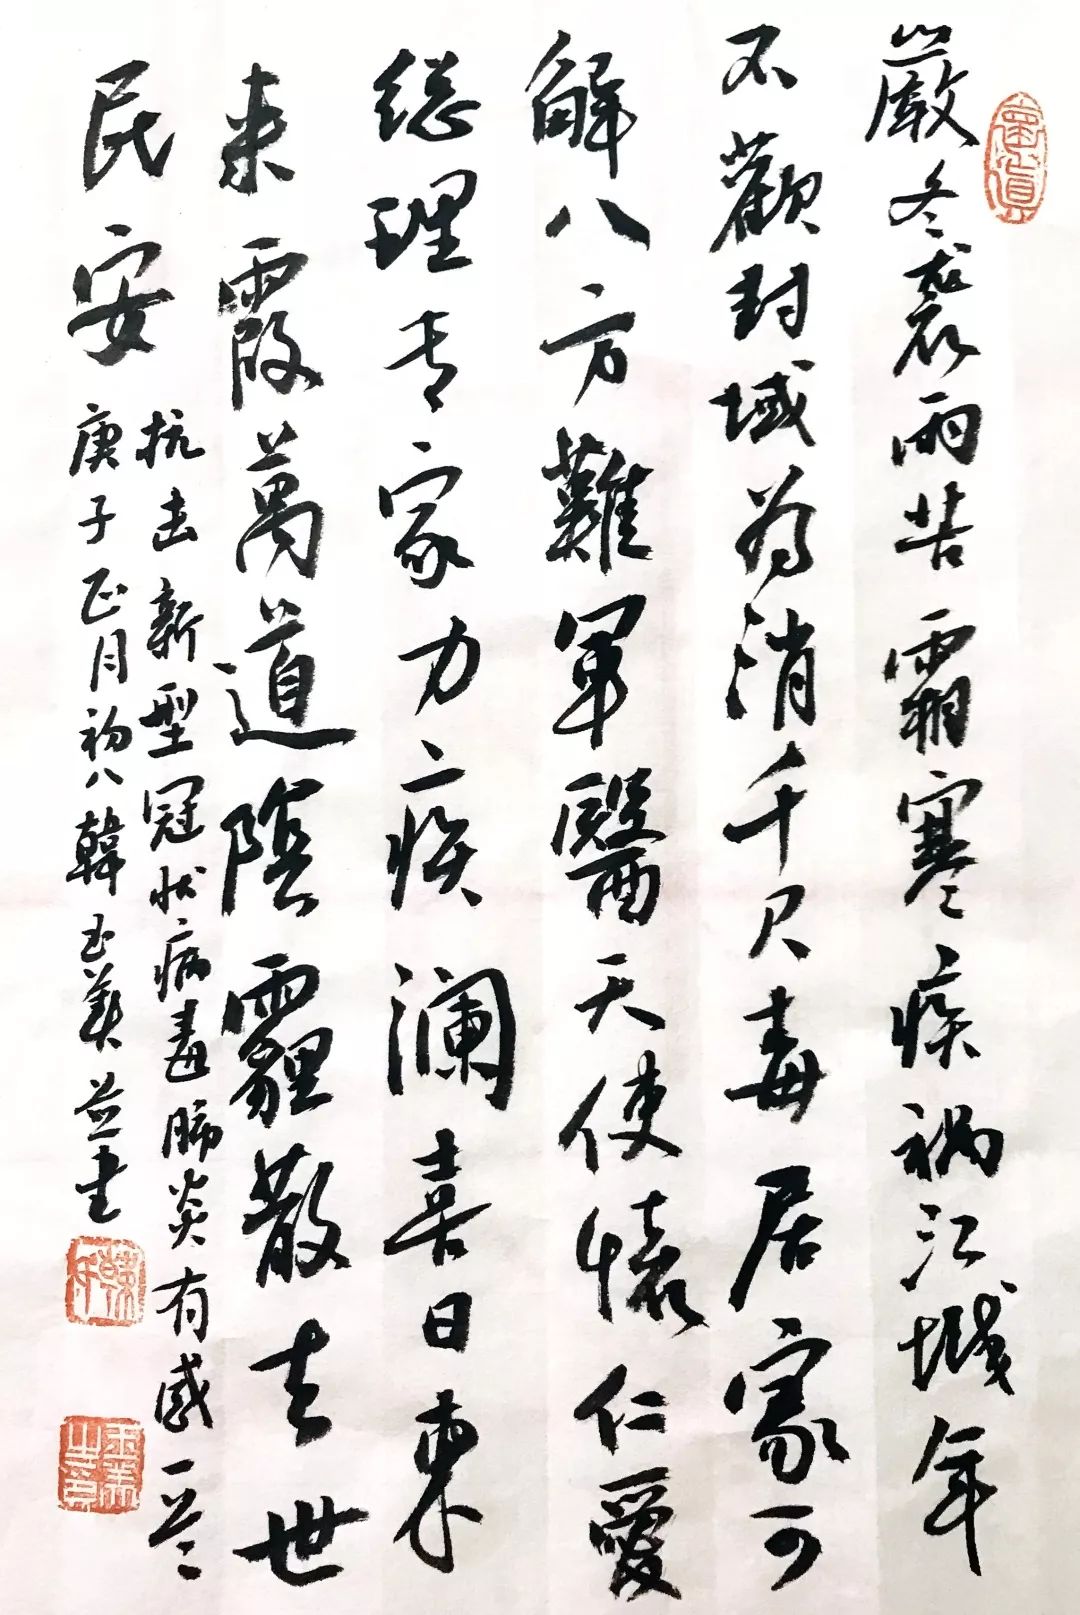 嚴冬裘雨苦霜寒疾禍江城年
不歡封域為消千尺毒居家可
解八方難軍醫天使懷仁愛
總理专家力疾澜喜日東
来霞萬道陰霾散去世
民安
抗击新型冠状病毒肺炎有感一首
庚子正月初八韓玉美並书